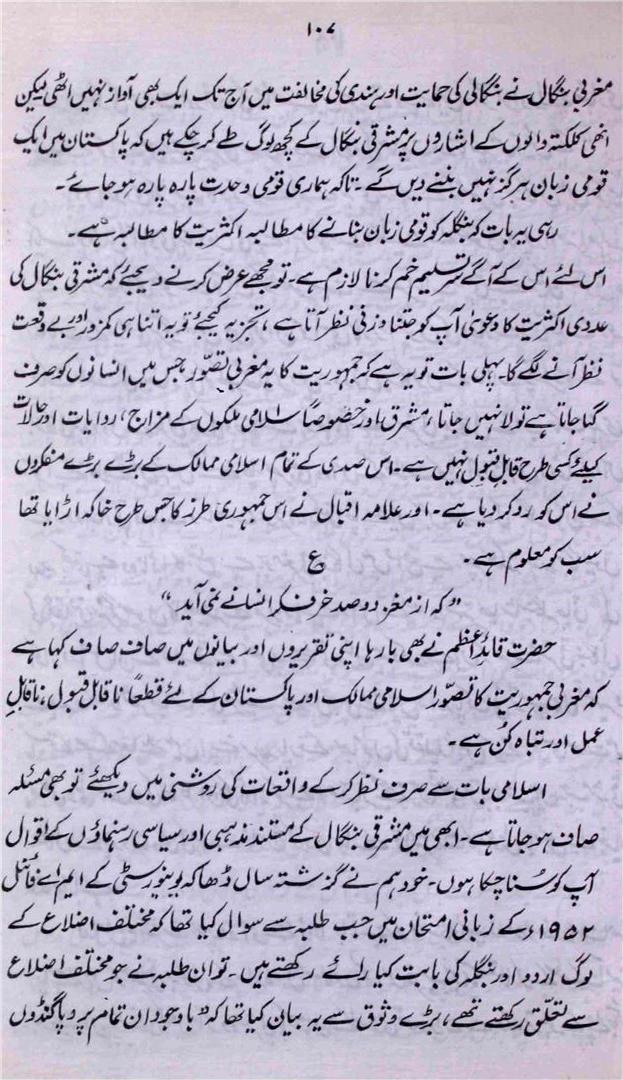 ۱۰۷
مغربی بنگال نے بنگالی کی حمایت اور ہندی کی مخالفت میں آج تک ایک بھی آواز نہیں اٹھی لیکن
انھی کلکتہ والوں کے اشاروں پر مشرقی بنگال کے کچھ لوگ طے کر چکے ہیں کہ پاکستان میں ایک
قومی زبان ہرگز نہیں بننے دیں گے۔ تاکہ ہماری قومی وحدت پارہ پارہ ہو جائے۔
رہی یہ بات کہ بنگلہ کو قومی زبان بنانے کا مطالبہ اکثریت کا مطالبہ ہے۔
اس لئے اس کے آگے سرِ تسلیم خم کرنا لازم ہے۔ تو مجھے عرض کرنے دیجئے کہ مشرقی بنگال کی
عددی اکثریت کا دعویٰ آپ کو جتنا وزنی نظر آتا ہے، تجزیہ کیجئے تو یہ اتنا ہی کمزور اور بے وقعت
نظر آنے لگے گا۔ پہلی بات تو یہ ہے کہ جمہوریت کا یہ مغربی تصوّر جس میں انسانوں کو صرف
گنا جاتا ہے تولا نہیں جاتا، مشرق اور خصوصاً اسلامی ملکوں کے مزاج، روایات اور حالات
کیلئے کسی طرح قابلِ قبول نہیں ہے۔ اس صدی کے تمام اسلامی ممالک کے بڑے بڑے مفکروں
نے اس کو رد کر دیا ہے۔ اور علامہ اقبال نے اس جمہوری طرز کا جس طرح خاکہ اڑایا تھا
سب کو معلوم ہے۔ ع
”کہ از مغز دو صد خر فکرِ انسانے نمی آید“
حضرت قائدِ اعظم نے بھی بارہا اپنی تقریروں اور بیانوں میں صاف صاف کہا ہے
کہ مغربی جمہوریت کا تصوّر اسلامی ممالک اور پاکستان کے لئے قطعاً ناقابل قبول، ناقابلِ
عمل اور تباہ کُن ہے۔
اسلامی بات سے صرف نظر کر کے واقعات کی روشنی میں دیکھئے تو بھی مسئلہ
صاف ہو جاتا ہے۔ ابھی میں مشرقی بنگال کے مستند مذہبی اور سیاسی رہنماؤں کے اقوال
آپ کو سُنا چکا ہوں۔ خود ہم نے گزشتہ سال ڈھاکہ یونیورسٹی کے ایم اے فائنل
۱۹۵۲ء کے زبانی امتحان میں جب طلبہ سے سوال کیا تھا کہ مختلف اضلاع کے
لوگ اردو اور بنگلہ کی بابت کیا رائے رکھتے ہیں۔ تو ان طلبہ نے جو مختلف اضلاع
سے تعلّق رکھتے تھے، بڑے وثوق سے یہ بیان کیا تھا کہ ”باوجود ان تمام پروپاگنڈوں